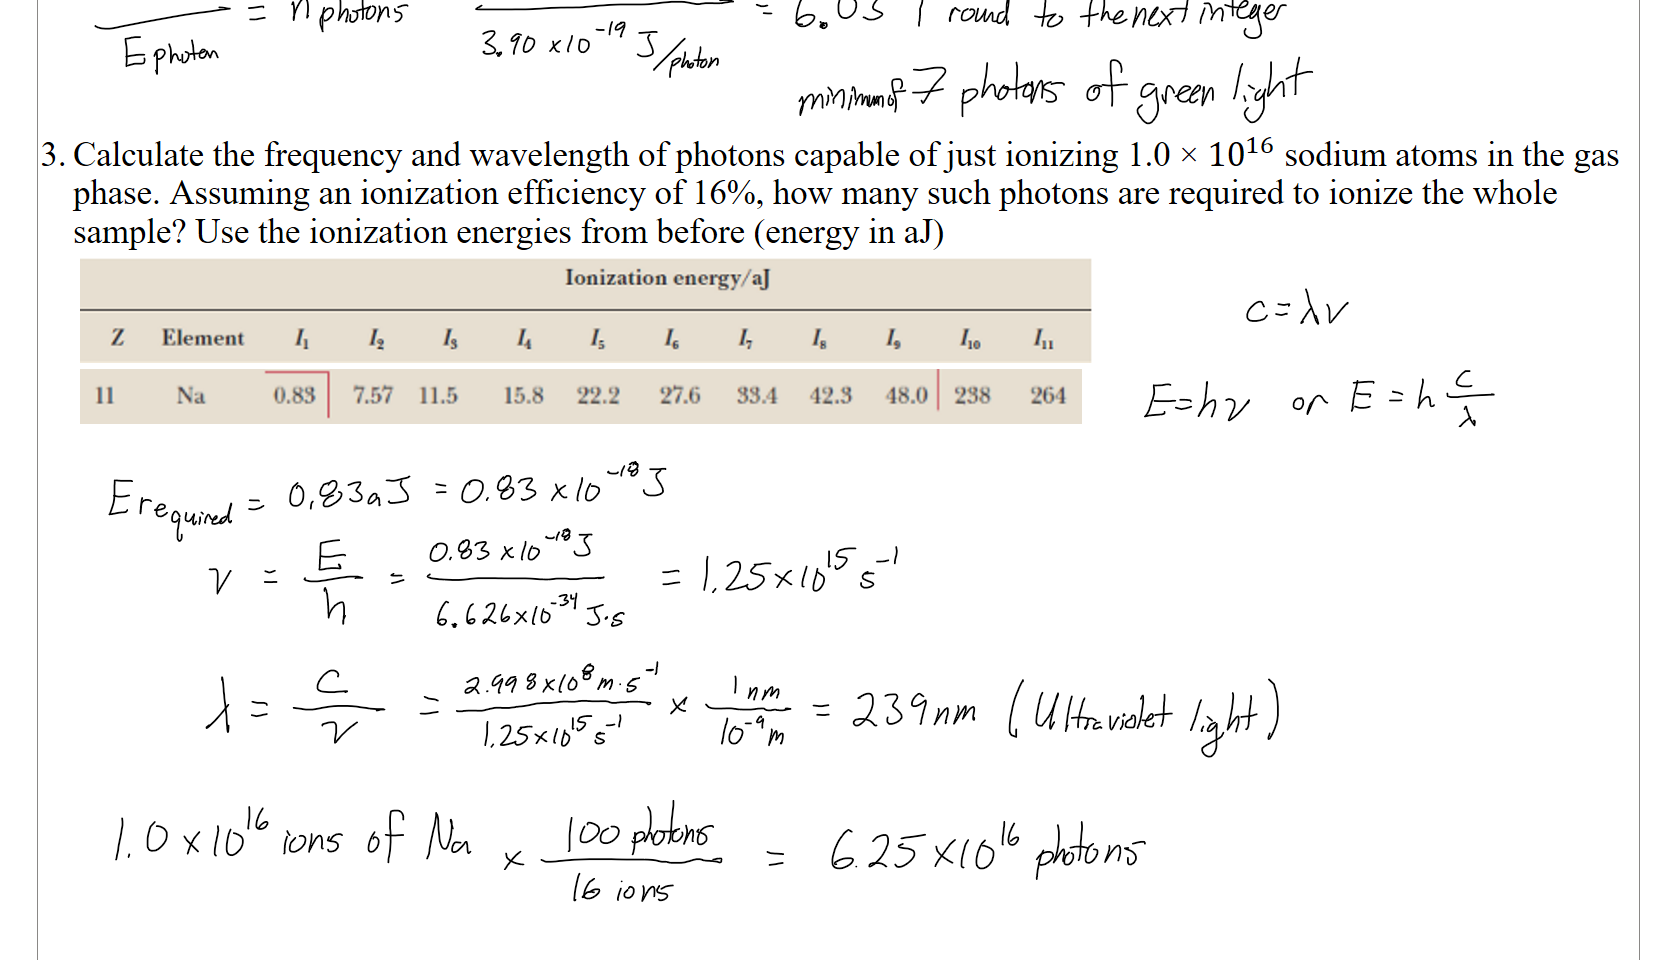 = n photons = 6.03 I round to the next integer
E photon 3.90 x10⁻¹⁹ J/photon
minimum of 7 photons of green light
3. Calculate the frequency and wavelength of photons capable of just ionizing 1.0 × 10¹⁶ sodium atoms in the gas
phase. Assuming an ionization efficiency of 16%, how many such photons are required to ionize the whole
sample? Use the ionization energies from before (energy in aJ)
Ionization energy/aJ
Z Element I₁ I₂ I₃ I₄ I₅ I₆ I₇ I₈ I₉ I₁₀ I₁₁
11 Na 0.83 7.57 11.5 15.8 22.2 27.6 33.4 42.3 48.0 238 264
c=λν
E=hν or E = h c/λ
E required = 0.83aJ = 0.83 x10⁻¹⁸ J
ν = E/h = 0.83 x10⁻¹⁸ J / 6.626x10⁻³⁴ J·s = 1.25x10¹⁵ s⁻¹
λ = c/ν = 2.998x10⁸ m·s⁻¹ / 1.25x10¹⁵ s⁻¹ x 1 nm / 10⁻⁹ m = 239nm (Ultraviolet light)
1.0 x 10¹⁶ ions of Na x 100 photons / 16 ions = 6.25 x10¹⁶ photons